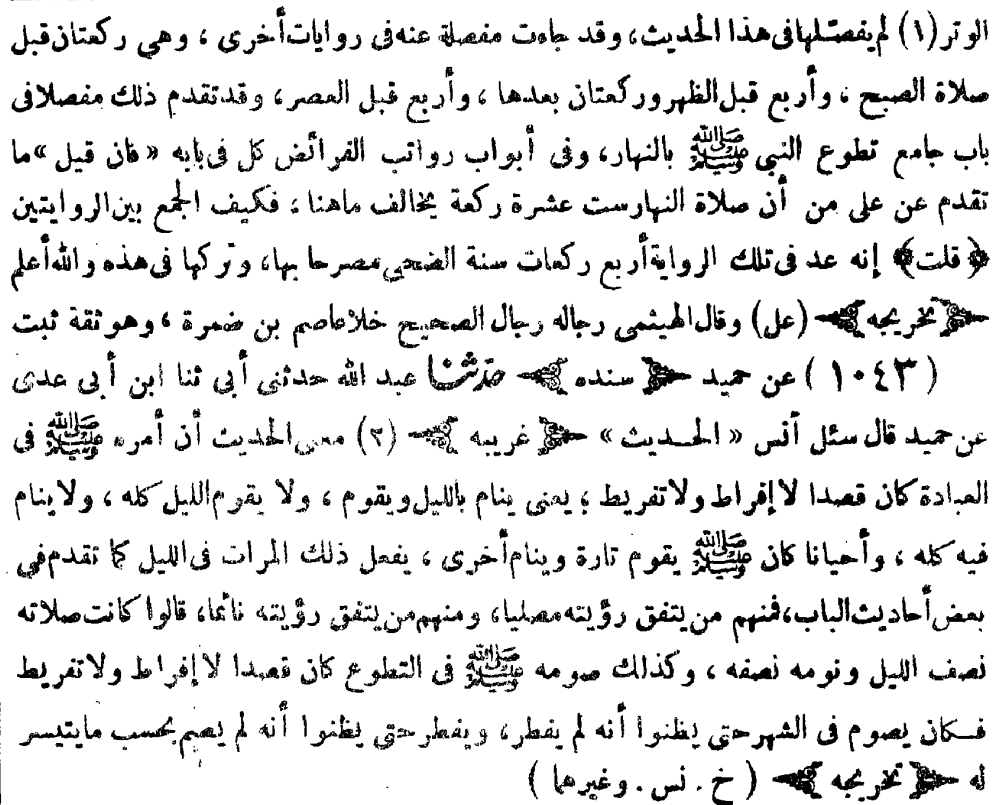 الوتر (١) لم يفصلها في هذا الحديث، وقد جاءت مفصلة عنه في روايات أخرى ، وهي ركعتان قبل
صلاة الصبح ، وأربع قبل الظهر وركعتان بعدها ، وأربع قبل العصر، وقد تقدم ذلك مفصلا في
باب جامع تطوع النبي ﷺ بالنهار، وفي أبواب رواتب الفرائض كل في بابه «فان قيل» ما
تقدم عن على من أن صلاة النهار ست عشرة ركعة يخالف ما هنا ؛ فكيف الجمع بين الروايتين
﴿قلت﴾ إنه عد في تلك الرواية أربع ركعات سنة الضحى مصرحا بها، وتركها في هذه والله أعلم
﴿تخريجه﴾ (عل) وقال الهيثمى رجاله رجال الصحيح خلا عاصم بن ضمرة ، وهو ثقة ثبت
(١٠٤٣) عن حميد ﴿سنده﴾ حدثنا عبد الله حدثنى أبى ثنا ابن أبى عدى
عن حميد قال سئل أنس « الحديث » ﴿غريبه﴾ (٢) معنى الحديث أن أمره ﷺ في
العبادة كان قصدا لا إفراط ولا تفريط ؛ يعنى ينام بالليل ويقوم ، ولا يقوم الليل كله ، ولا ينام
فيه كله ، وأحيانا كان ﷺ يقوم تارة وينام أخرى ، يفعل ذلك المرات في الليل كما تقدم في
بعض أحاديث الباب، فمنهم من يتفق رؤيته مصليا، ومنهم من يتفق رؤيته نائما، قالوا كانت صلاته
نصف الليل ونومه نصفه ، وكذلك صومه ﷺ في التطوع كان قصدا لا إفراط ولا تفريط
فكان يصوم في الشهر حتى يظنوا أنه لم يفطر، ويفطر حتى يظنوا أنه لم يصم بحسب ما يتيسر
له ﴿تخريجه﴾ ( خ . نس . وغيرهما )